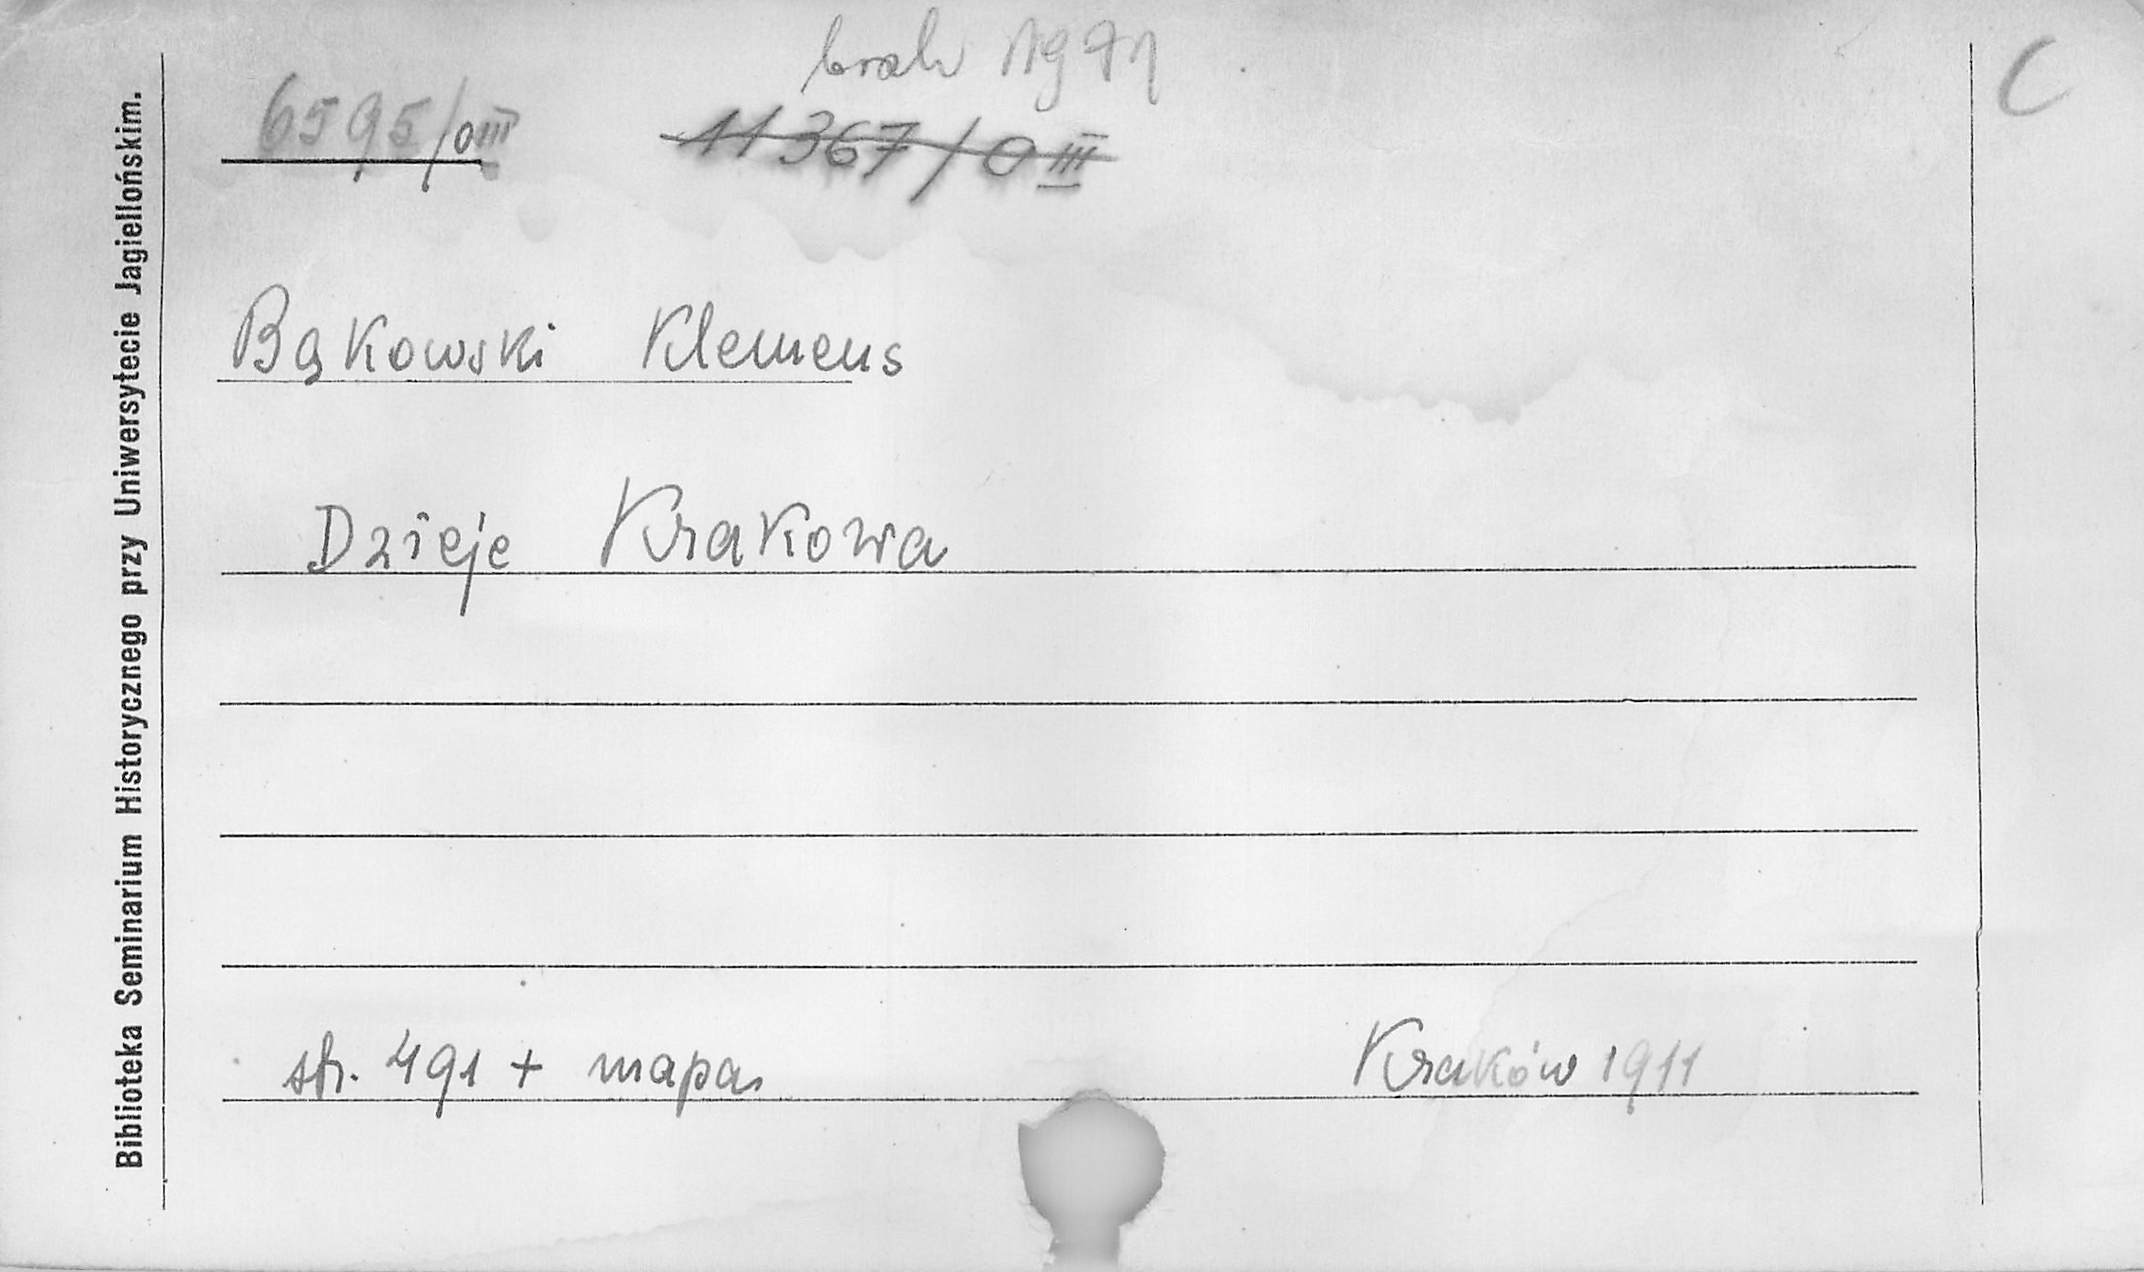 brak 1971
C
6595/0III
11367/0III
Bąkowski Klemens
Dzieje Krakowa
str. 491 + mapa
Kraków 1911
Biblioteka Seminarium Historycznego przy Uniwersytecie Jagiellońskim.